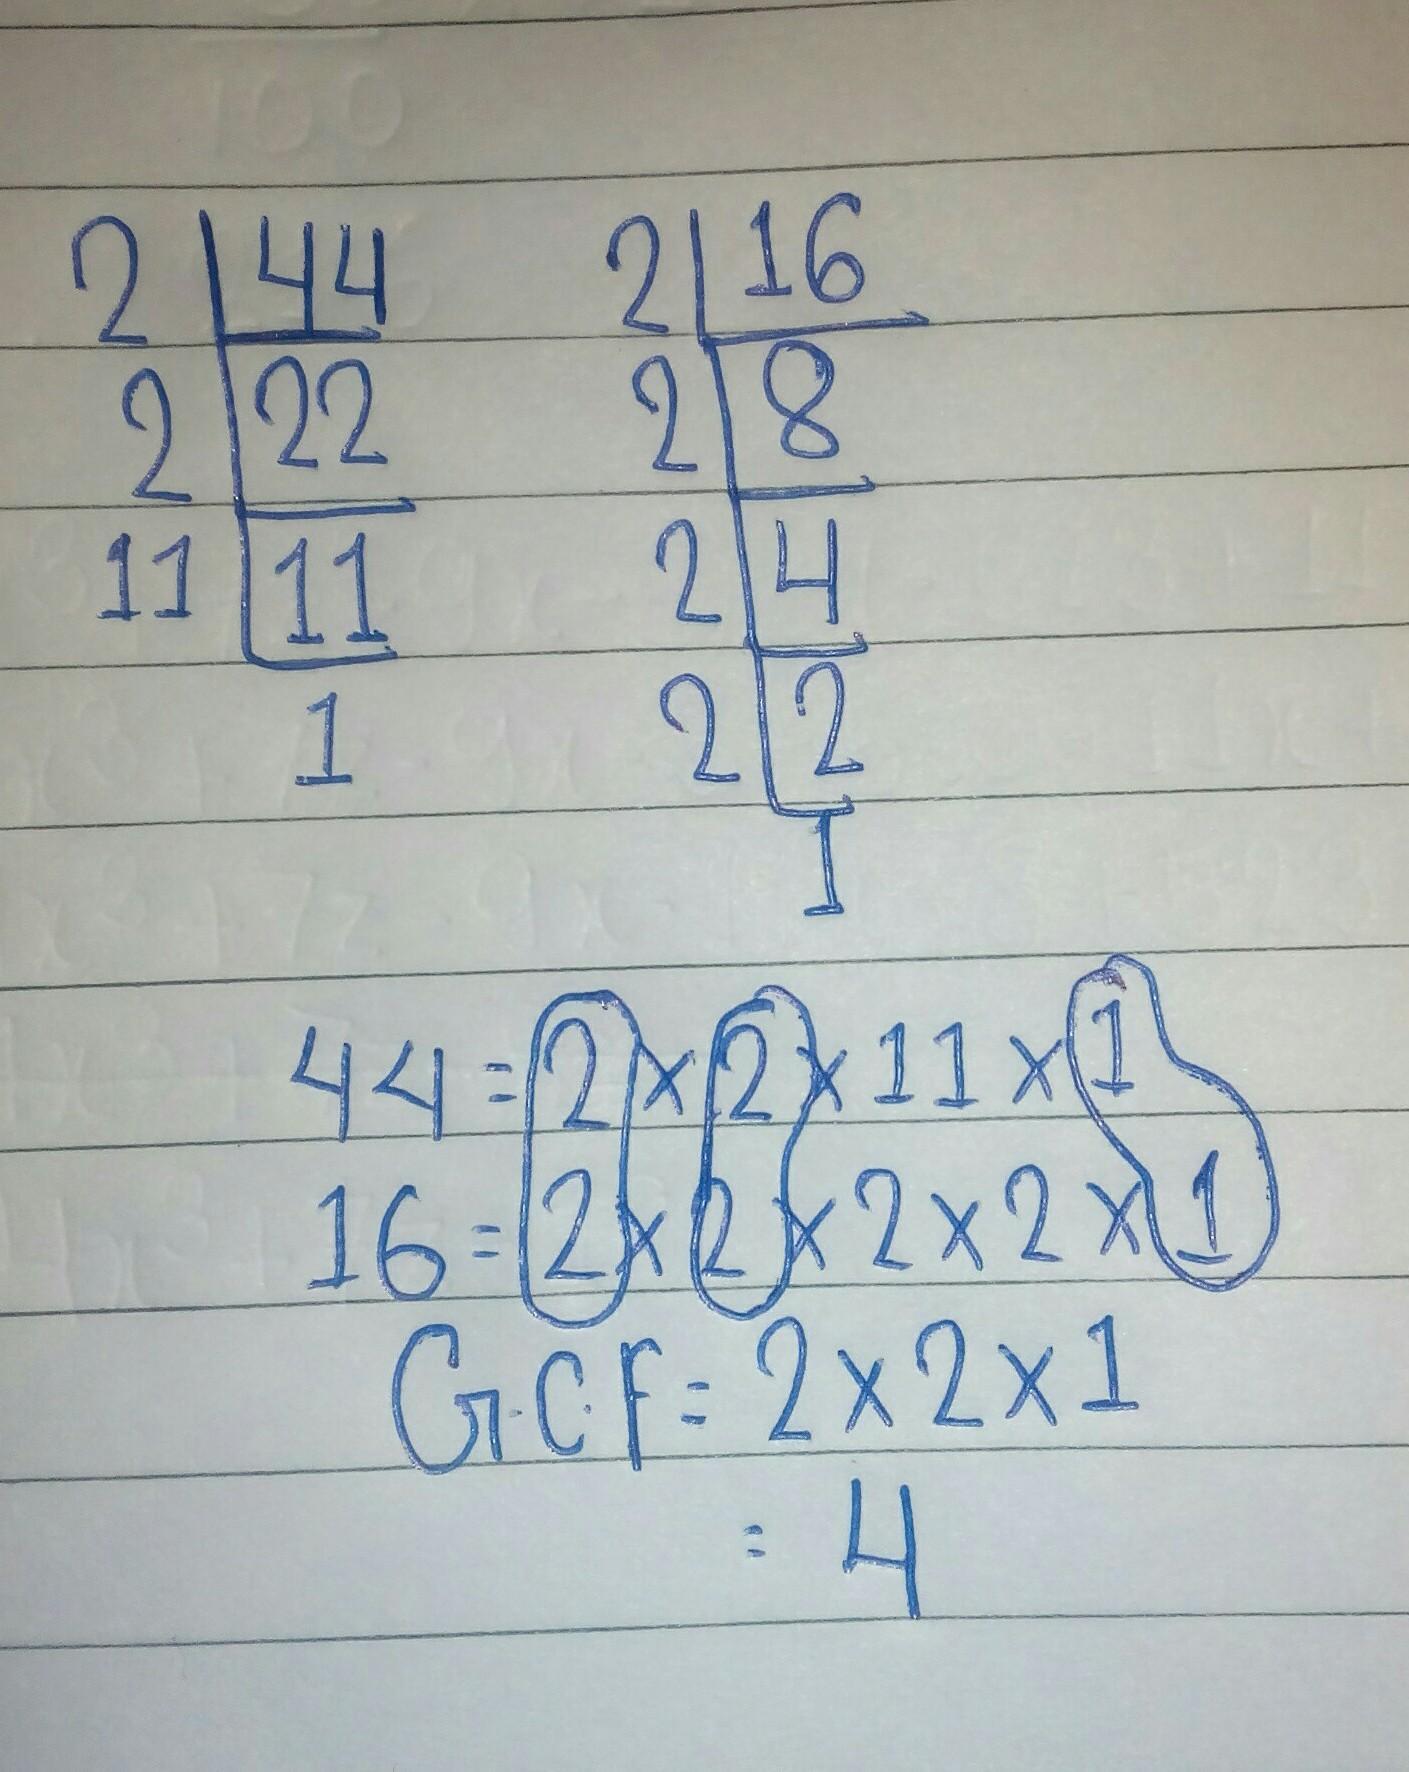 2 | 44
2 | 22
11 | 11
1
2 | 16
2 | 8
2 | 4
2 | 2
1
44 = 2 × 2 × 11 × 1
16 = 2 × 2 × 2 × 2 × 1
G.C.F = 2 × 2 × 1
= 4